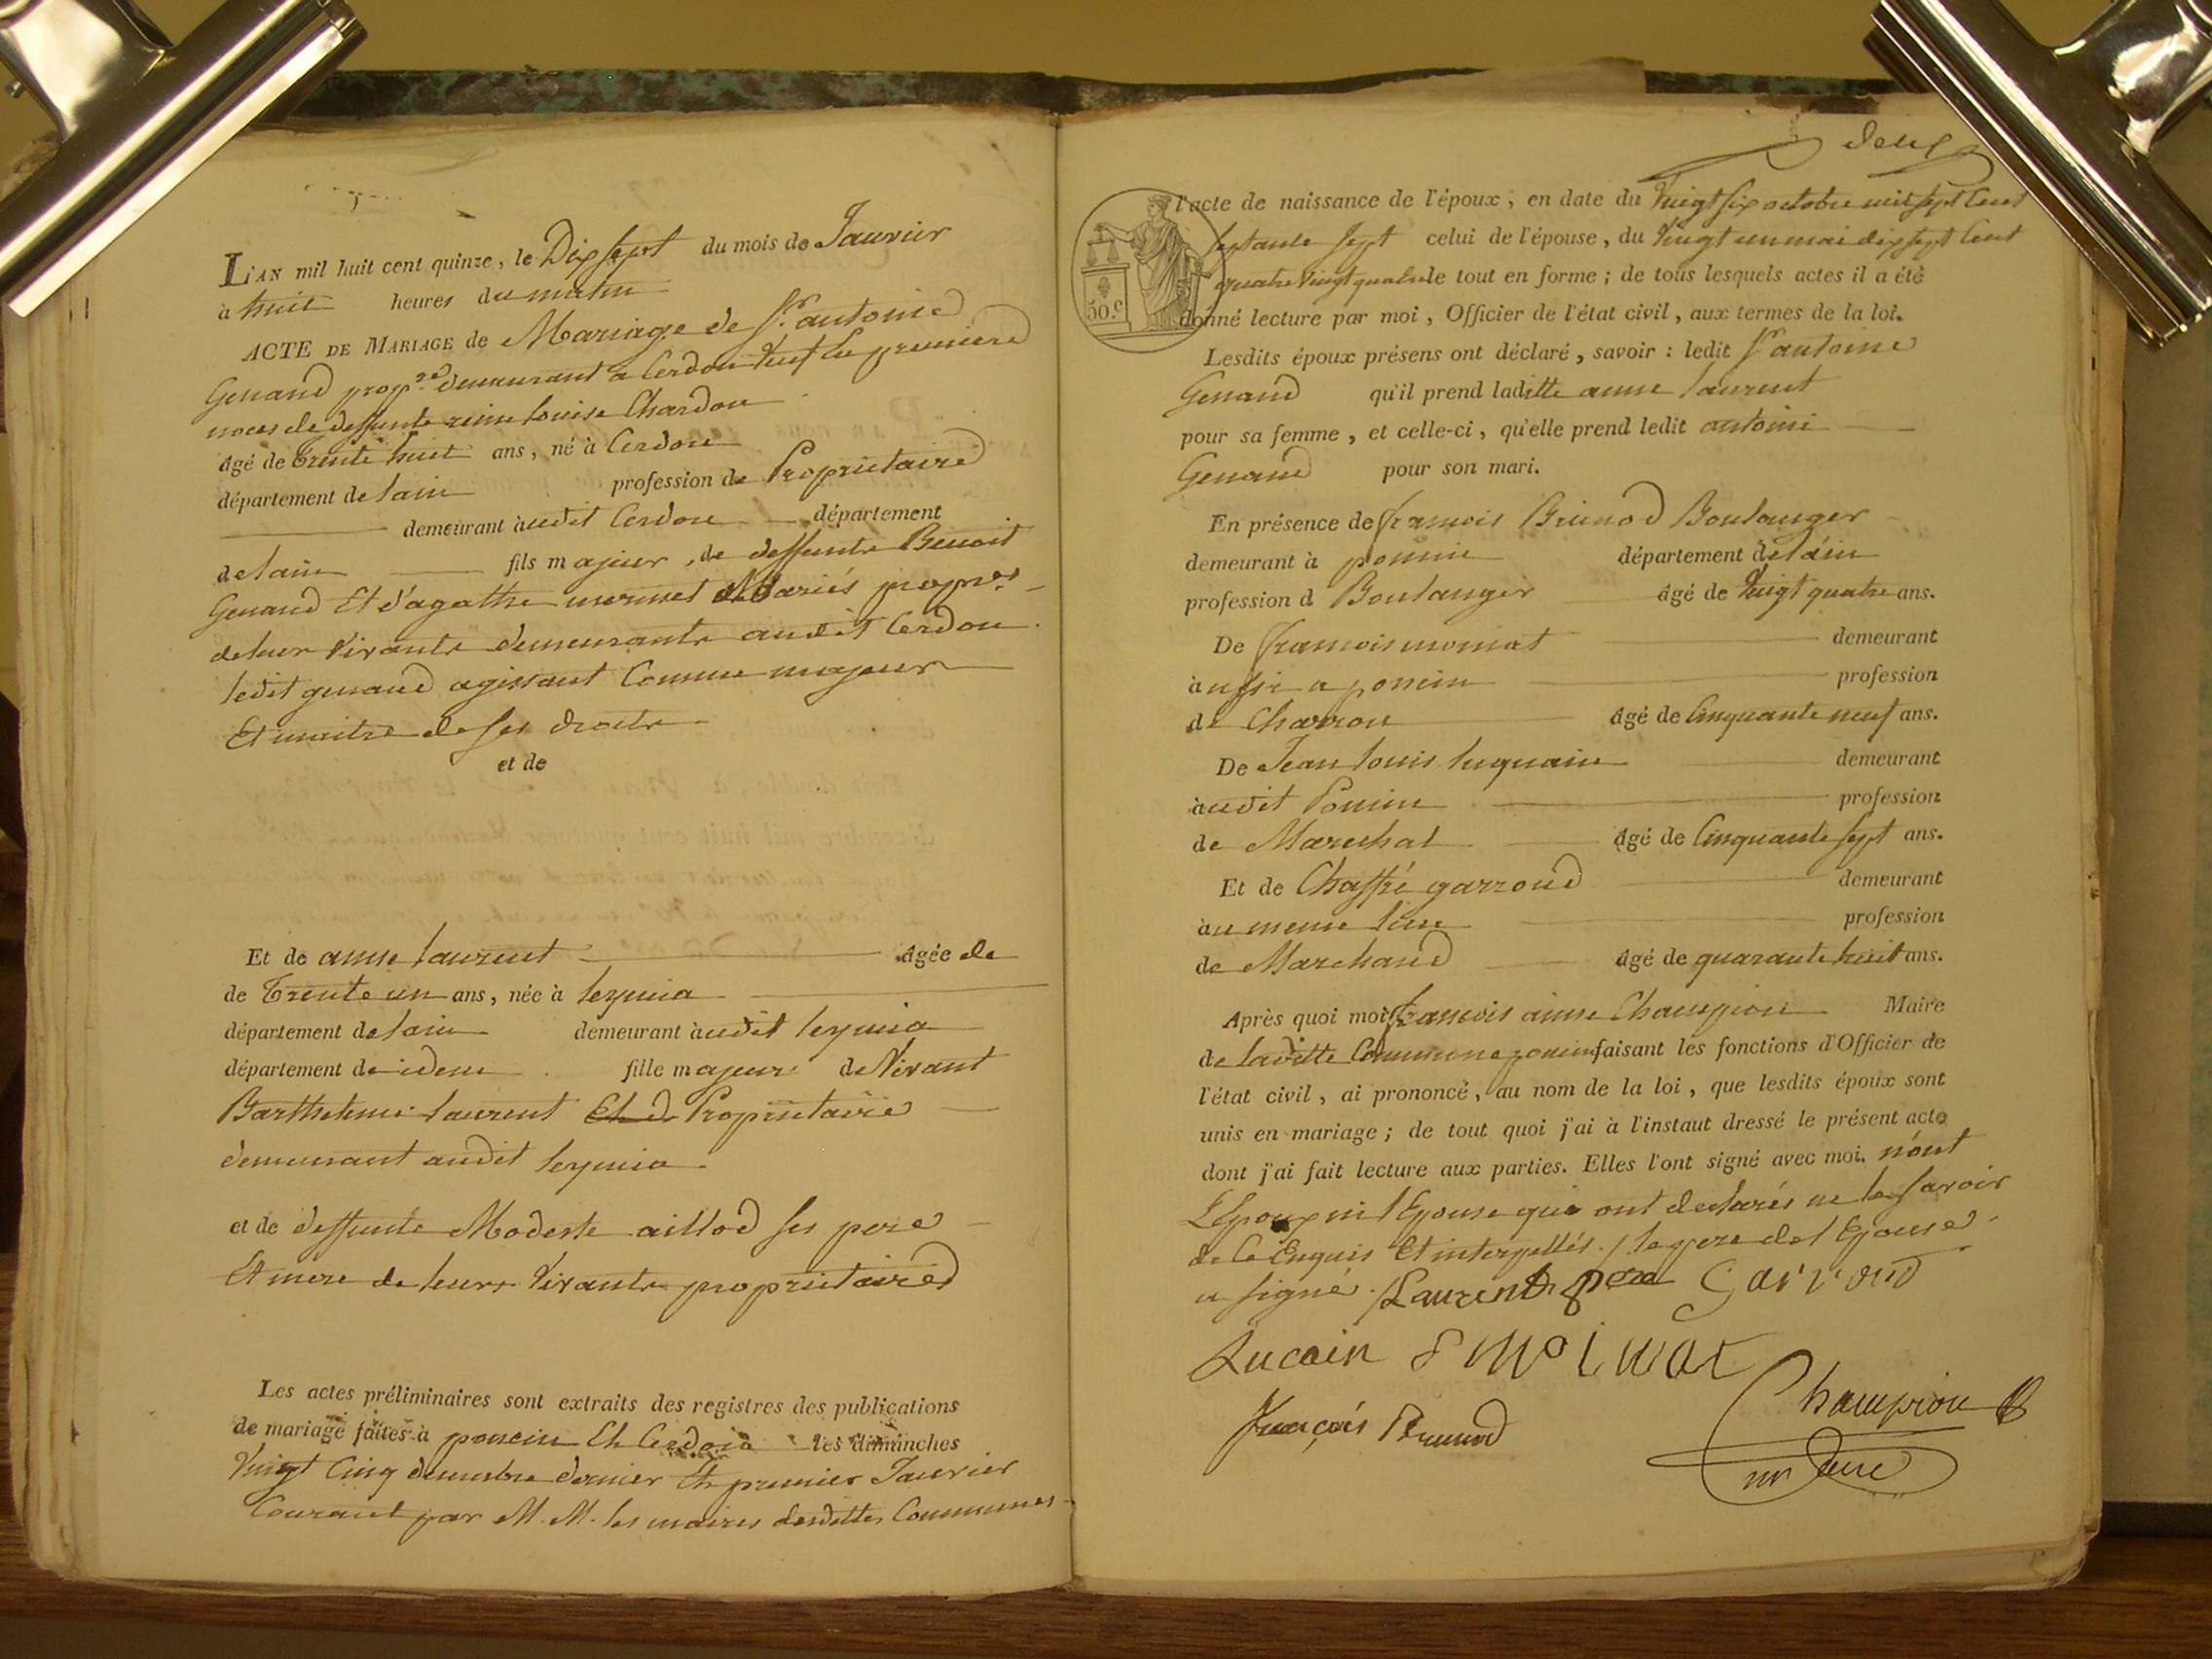 L'AN mil huit cent quinze, le Dix sept du mois de Janvier
à huit heures du matin
ACTE DE MARIAGE de Mariage de Sr. antoine
Genand prop.re demeurant a Cerdon veuf en premiere
noces de deffunte reine louise Chardon
âgé de Trente huit ans, né à Cerdon
département de lain profession de Proprietaire
demeurant àudit Cerdon département
de lain fils majeur, de deffunts Benoit
Genand Et d'agathe mermet Mariés propres
de leur vivants demeurants audit Cerdon
ledit genand agissant Comme majeur
Et maitre de ses droits
et de
Et de anne laurent Agée de
de Trente un ans, née à leymia
département de lain demeurant àudit leymia
département de idem fille majeure de vivant
Barthelemi laurent Et de Proprietaire
demeurant audit leymia
et de deffunte Modeste aillod ses pere
Et mere de leurs vivants proprietaires
Les actes préliminaires sont extraits des registres des publications
de mariage faites à poncin Et Cerdon les dimanches
vingt Cinq decembre dernier Et premier Janvier
Courant par M. M. les maires desdittes Communes
deux
l'acte de naissance de l'époux, en date du vingt six octobre mil sept cent
septante sept celui de l'épouse, du vingt un mai dix sept Cent
quatre vingt quatre le tout en forme; de tous lesquels actes il a été
50.c
donné lecture par moi, Officier de l'état civil, aux termes de la loi.
Lesdits époux présens ont déclaré, savoir: ledit Sr antoine
Genand qu'il prend laditte anne laurent
pour sa femme, et celle-ci, qu'elle prend ledit antoine
Genand pour son mari.
En présence de francois Brunod Boulanger
demeurant à poncin département de lain
profession d Boulanger âgé de vingt quatre ans.
De francois moinat demeurant
àussi a poncin profession
de Charron âgé de Cinquante neuf ans.
De Jean louis luquain demeurant
àudit Poncin profession
de Marechal âgé de Cinquante sept ans.
Et de Chaffré garroud demeurant
àu meme lieu profession
de Marchand âgé de quarante huit ans.
Après quoi moi francois aime Champion Maire
de laditte Commune poncin faisant les fonctions d'Officier de
l'état civil, ai prononcé, au nom de la loi, que lesdits époux sont
unis en mariage; de tout quoi j'ai à l'instaut dressé le présent acte
dont j'ai fait lecture aux parties. Elles l'ont signé avec moi. n'ont
L'Epoux ni l'Epouse qui ont declarés ne le savoir
de Ce Enquis Et interpellés. / le pere de l Epouse
a signé. / Laurent pere Garroud
Lucain F moinat
françois Brunod
Champion